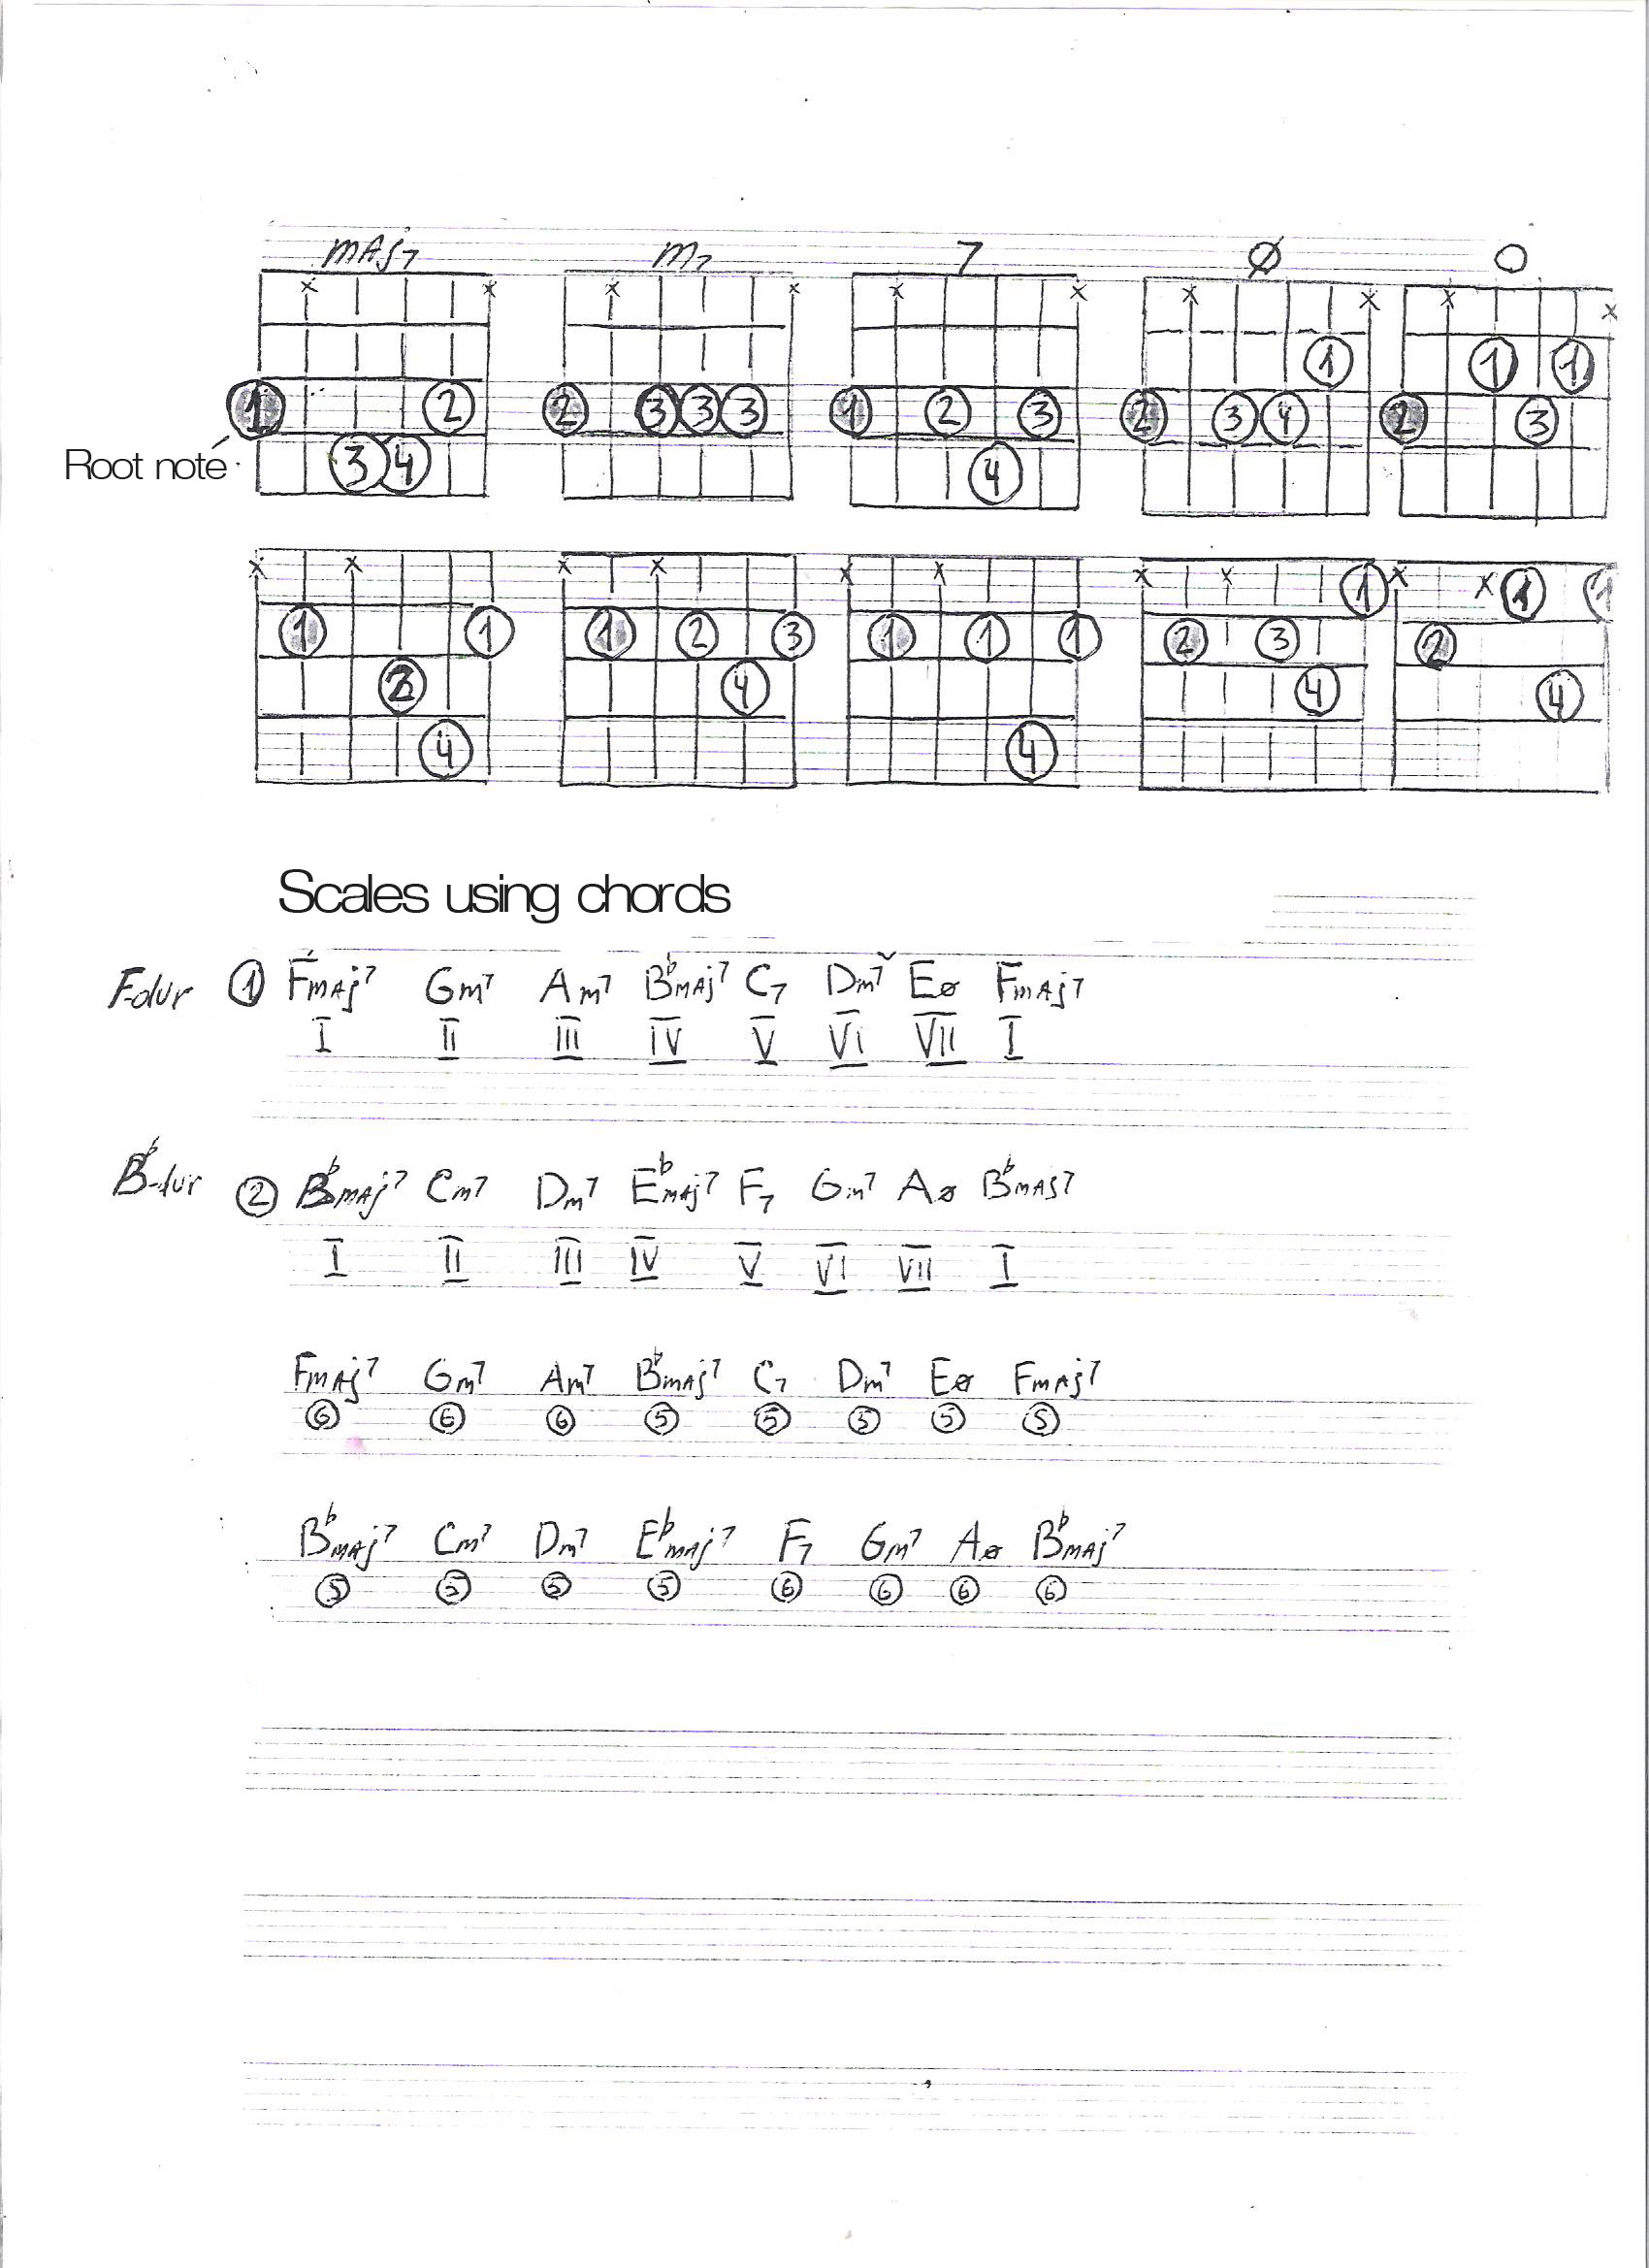 mAj7 m7 7 Ø O
x x x x x x x x x x
1 2 2 3 3 3 1 2 3 2 3 4 1 2 1 1 3
Root note 3 4 4
x x x x x x x x x x
1 1 1 2 3 1 1 1 2 3 1 2 1 1
4 4 4
4 4
Scales using chords
F-dur ① Fmaj7 Gm7 Am7 B♭maj7 C7 Dm7 Eø Fmaj7
I II III IV V VI VII I
B♭-dur ② B♭maj7 Cm7 Dm7 E♭maj7 F7 Gm7 Aø B♭maj7
I II III IV V VI VII I
Fmaj7 Gm7 Am7 B♭maj7 C7 Dm7 Eø Fmaj7
⑥ ⑥ ⑥ ⑤ ⑤ ⑤ ⑤ ⑤
B♭maj7 Cm7 Dm7 E♭maj7 F7 Gm7 Aø B♭maj7
⑤ ⑤ ⑤ ⑤ ⑥ ⑥ ⑥ ⑥